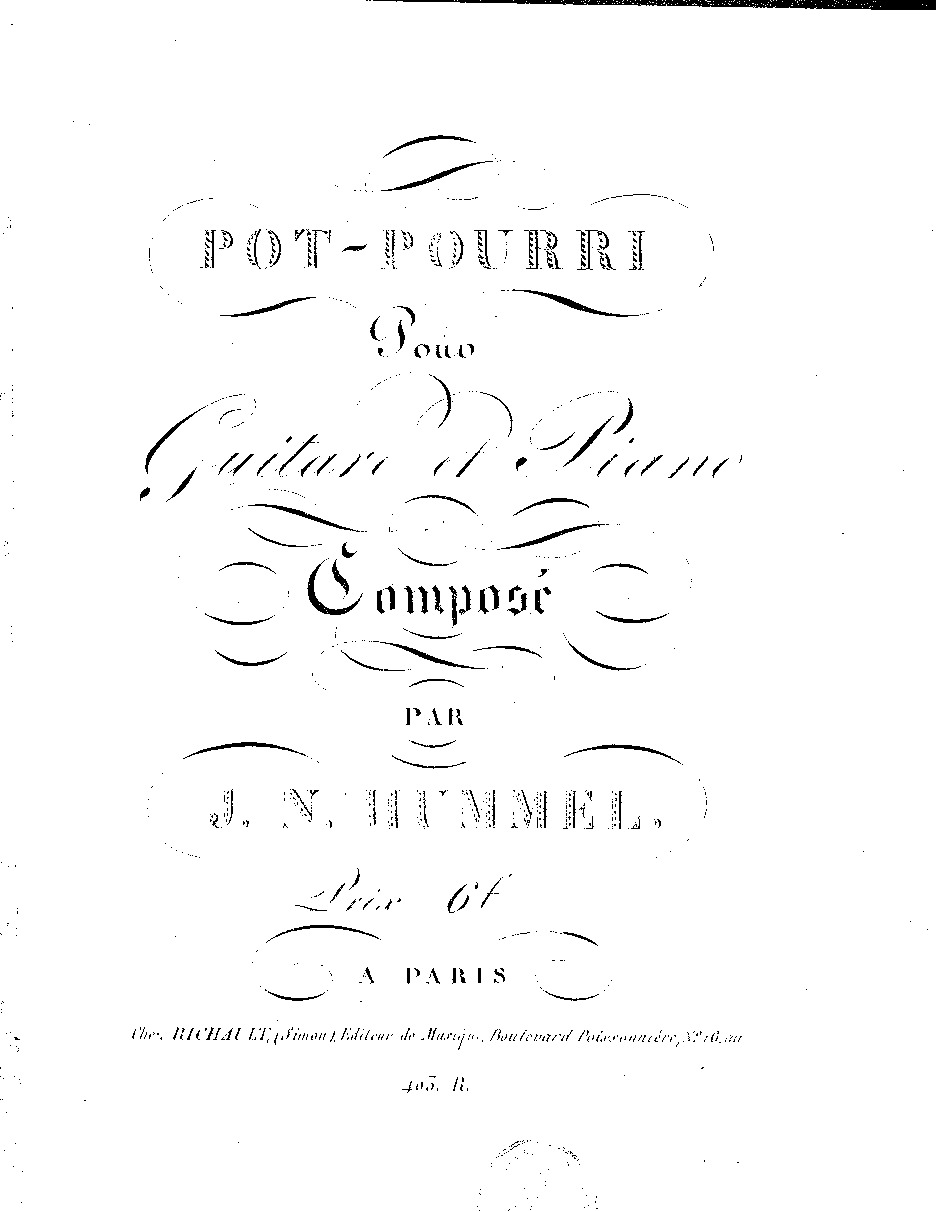 POT-POURRI
Pour
Guitare et Piano
Composé
PAR
J. N. HUMMEL.
Prix 6f
A PARIS
Chez RICHAULT, (Simon), Editeur de Musique, Boulevard Poissonnière, Nº 16, au
403. R.